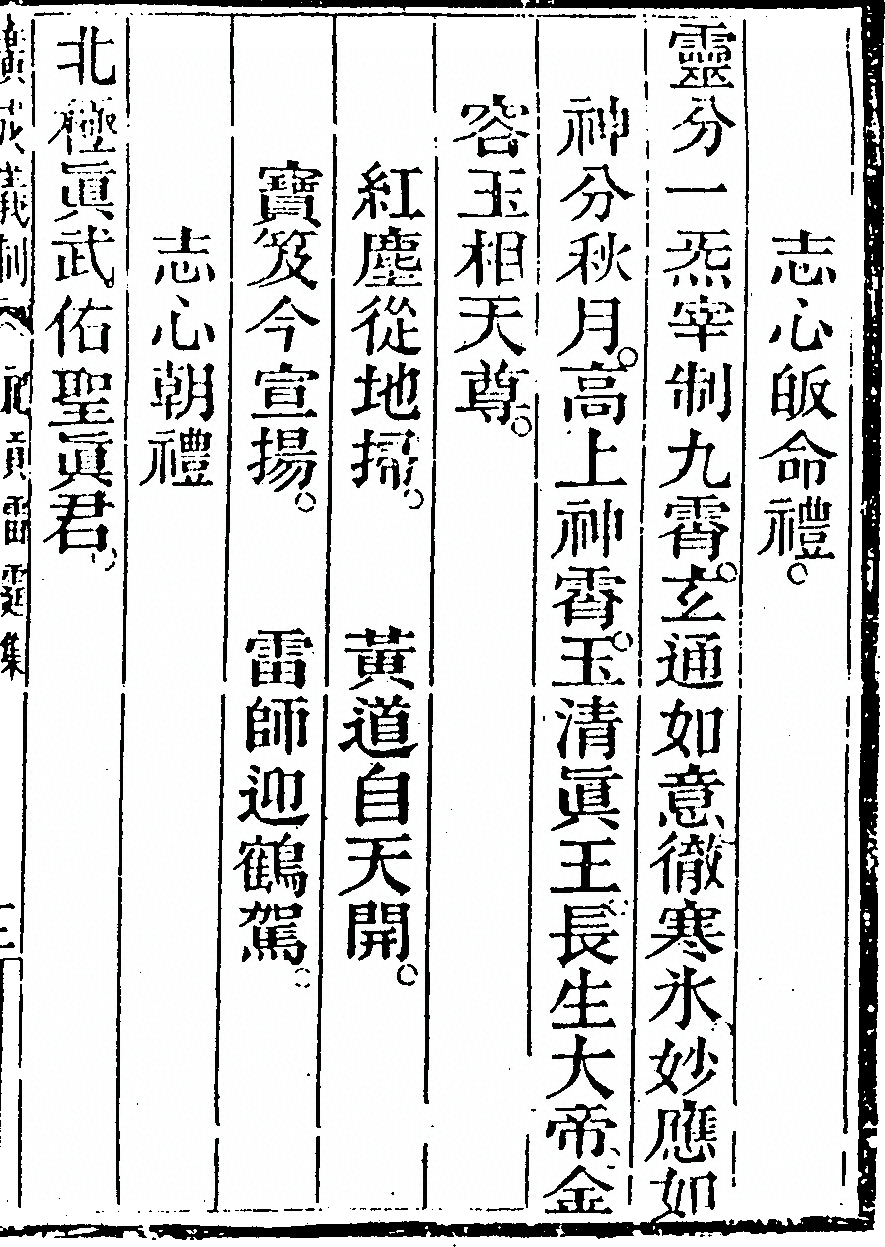 志心皈命禮。
靈分一炁宰制九霄。玄通如意徹寒氷妙應如
神分秋月。高上神霄。玉清眞王。長生大帝。金
容玉相天尊。
紅塵從地掃。　黃道自天開。
寶笈今宣揚。　雷師迎鶴駕。
志心朝禮
北極眞武佑聖眞君。
廣成儀制　祀貢雷霆集　三